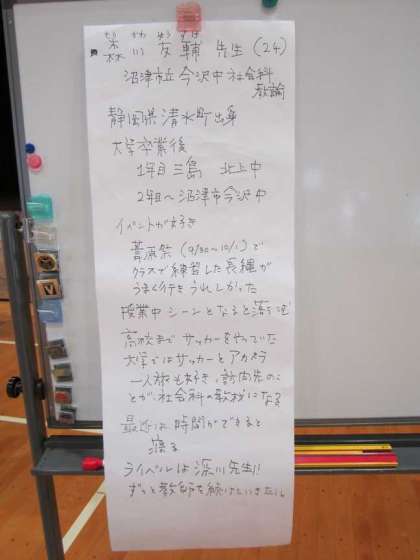 友輔 先生 (24)
沼津市立 今沢中 社会科
教諭
静岡県 清水町出身
大学卒業後
1年目 三島 北上中
2年目〜沼津市今沢中
イベントが好き
(9/30〜10/1)で
クラスで練習した長縄が
うまく行きうれしかった
授業中 シーンとなると
高校まで サッカーをやっていた
大学ではサッカーとアカペラ
一人旅も好き 訪問先のこ
とが、社会科の教材になる
最近は 時間ができると
寝る
ライバルは 深川先生!!
ずっと教師を続けていきたい